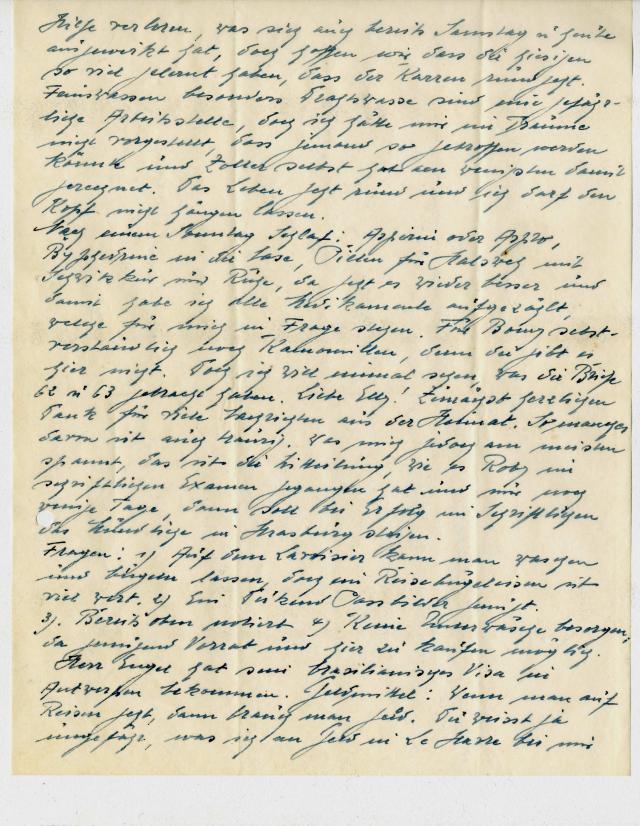 Hilfe verloren, was sich auch bereits Samstag u heute
ausgewirkt hat, doch hoffen wir, dass die hiesigen
so viel gelernt haben, dass der Karren rund geht.
besonders sind eine gefähr-
liche Arbeitsstelle, doch ich hätte mir im Träume
nicht vorgestellt, dass jemand so getroffen werden
könnte und Zoller selbst hat am wenigsten damit
gerechnet. Das Leben geht rund und ich darf den
Kopf nicht hängen lassen.
Nach einem Sonntag Schlaf: Aspirin oder Aspro,
in die Nase, Pillen für Halsweh mit
Schwitzkur und Ruhe, da geht es wieder besser und
damit habe ich alle Medikamente aufgezählt,
welche für mich in Frage stehen. Für selbst-
verständlich noch Kamomillen, denn die gibt es
hier nicht. Doch ich will einmal sehen, was die Briefe
62 u 63 gebracht haben. Liebe Elly! Zunächst herzlichen
Dank für viele Nachrichten aus der Heimat. So manches
davon ist auch traurig. Was mich jedoch am meisten
spannt, das ist die Mitteilung, wie es Roby im
schriftlichen Examen gegangen hat und nur noch
wenige Tage, dann soll bei Erfolg im Schriftlichen
das Mündliche in Strasburg steigen.
Fragen: 1) Auf dem Lavoisier kann man waschen
und bügeln lassen, doch ein Reisebügeleisen ist
viel wert. 2) Ein Dutzend Passbilder genügt.
3). Bereits oben notiert 4) Keine Unterwäsche besorgen,
da genügend Vorrat und hier zu kaufen möglich.
Herr Engel hat sein brasilianisches Visa in
Antwerpen bekommen. Geldmittel: Wenn man auf
Reisen geht, dann brauch man Geld. Du weisst ja
ungefähr, was ich an Geld in Le Havre bei mir